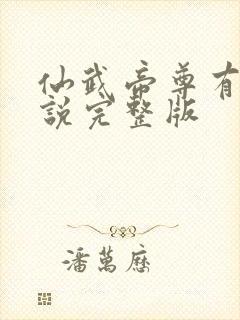 仙武帝尊有
說完整版
潘萬歷